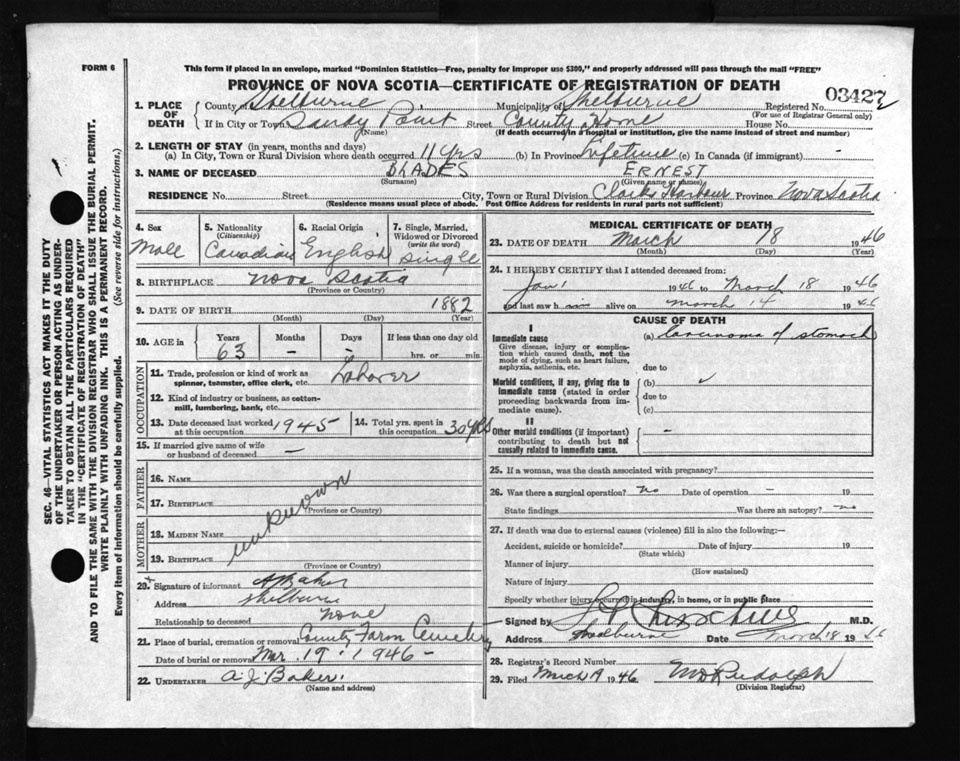 FORM 6
This form if placed in an envelope, marked "Dominion Statistics—Free, penalty for improper use $300," and properly addressed will pass through the mail "FREE"
PROVINCE OF NOVA SCOTIA—CERTIFICATE OF REGISTRATION OF DEATH
1. PLACE OF DEATH County of Shelburne Municipality of Shelburne Registered No. 03422
(For use of Registrar General only)
If in City or Town Sandy Point Street County Home House No.
(Name) (If death occurred in a hospital or institution, give the name instead of street and number)
2. LENGTH OF STAY (in years, months and days)
(a) In City, Town or Rural Division where death occurred 11 yrs (b) In Province Lifetime (c) In Canada (if immigrant) -
3. NAME OF DECEASED BLADES ERNEST
(Surname) (Given name or names)
RESIDENCE No. Street City, Town or Rural Division Clarks Harbour Province Nova Scotia
(Residence means usual place of abode. Post Office Address for residents in rural parts not sufficient)
4. Sex 5. Nationality 6. Racial Origin 7. Single, Married, Widowed or Divorced
(Citizenship) (write the word)
Male Canadian English Single
8. BIRTHPLACE Nova Scotia
(Province or Country)
9. DATE OF BIRTH 1882
(Month) (Day) (Year)
10. AGE in Years Months Days If less than one day old
63 - - hrs. or min.
OCCUPATION
11. Trade, profession or kind of work as spinner, teamster, office clerk, etc. Laborer
12. Kind of industry or business, as cotton-mill, lumbering, bank, etc.
13. Date deceased last worked at this occupation 1945 14. Total yrs. spent in this occupation 30 yrs
15. If married give name of wife or husband of deceased —
FATHER
16. NAME
17. BIRTHPLACE
(Province or Country)
unknown
MOTHER
18. MAIDEN NAME
19. BIRTHPLACE
(Province or Country)
20. Signature of informant A J Baker
Address Shelburne
Relationship to deceased none
21. Place of burial, cremation or removal County Farm Cemetery
Date of burial or removal Mar. 19. 1946 -
22. UNDERTAKER A. J. Baker.
(Name and address)
MEDICAL CERTIFICATE OF DEATH
23. DATE OF DEATH March 18 1946
(Month) (Day) (Year)
24. I HEREBY CERTIFY that I attended deceased from:
Jan 1 1946 to March 18 1946
and last saw him alive on March 14 1946
CAUSE OF DEATH
I
Immediate cause (a) Carcinoma of stomach
Give disease, injury or complication which caused death, not the mode of dying, such as heart failure, asphyxia, asthenia, etc.
due to
Morbid conditions, if any, giving rise to immediate cause (stated in order proceeding backwards from immediate cause).
(b)
due to
(c)
II
Other morbid conditions (if important) contributing to death but not causally related to immediate cause. -
25. If a woman, was the death associated with pregnancy?
26. Was there a surgical operation? no Date of operation - 19
State findings Was there an autopsy? no
27. If death was due to external causes (violence) fill in also the following:—
Accident, suicide or homicide? Date of injury 19
(State which)
Manner of injury
(How sustained)
Nature of injury
Specify whether injury occurred in industry, in home, or in public place
Signed by M.D.
Address Shelburne Date March 18 1946
28. Registrar's Record Number
29. Filed March 19 1946 Rudolph
(Division Registrar)
SEC. 46—VITAL STATISTICS ACT MAKES IT THE DUTY
OF THE UNDERTAKER OR PERSON ACTING AS UNDER-
TAKER TO OBTAIN ALL THE PARTICULARS REQUIRED
IN THE "CERTIFICATE OF REGISTRATION OF DEATH"
AND TO FILE THE SAME WITH THE DIVISION REGISTRAR WHO SHALL ISSUE THE BURIAL PERMIT.
WRITE PLAINLY WITH UNFADING INK. THIS IS A PERMANENT RECORD.
Every item of information should be carefully supplied. (See reverse side for instructions.)